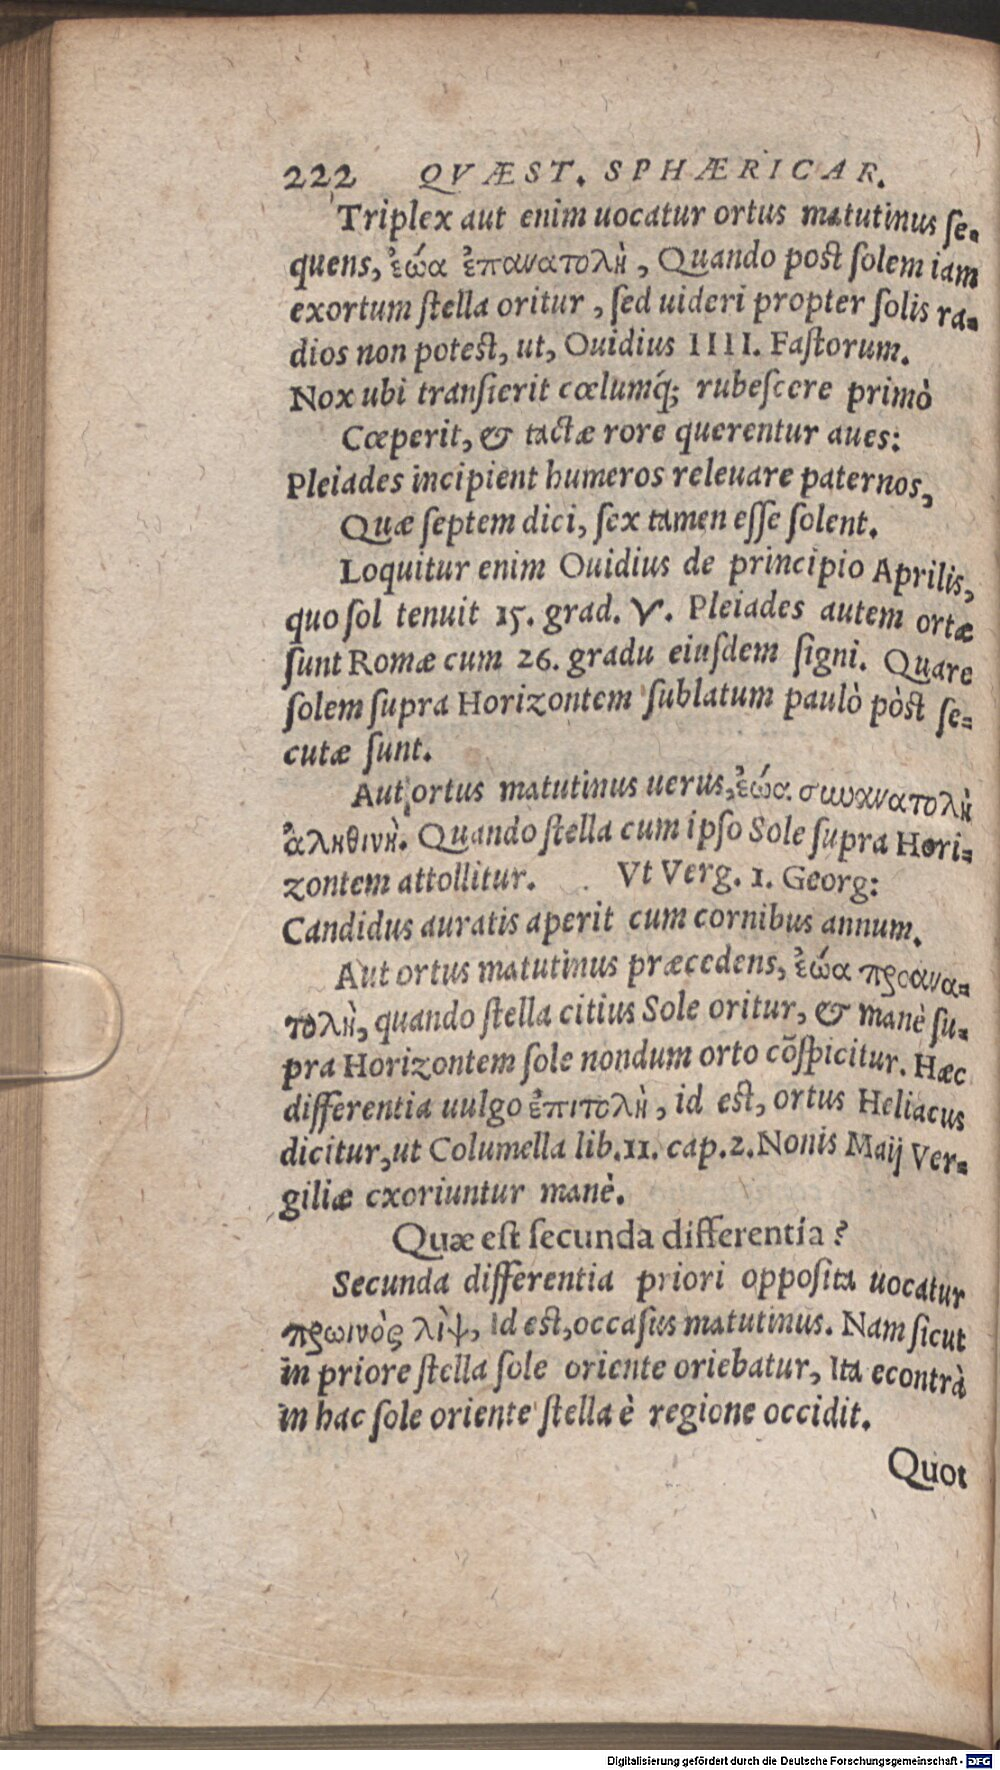 222 QVÆST. SPHÆRICAR.
Triplex aut enim uocatur ortus matutinus ſe-
quens, ἑώα ἐπανατολὴ, Quando post ſolem iam
exortum ſtella oritur, ſed uideri propter ſolis ra-
dios non potest, ut, Ouidius IIII. Faſtorum.
Nox ubi tranſierit cœlumq́; rubeſcere primò
Cœperit, & tactæ rore querentur aues:
Pleiades incipient humeros releuare paternos,
Quæ ſeptem dici, ſex tamen eſſe ſolent.
Loquitur enim Ouidius de principio Aprilis,
quo ſol tenuit 15. grad. ♈. Pleiades autem ortæ
ſunt Romæ cum 26. gradu eiuſdem ſigni. Quare
ſolem ſupra Horizontem ſublatum paulò pòst ſe-
cutæ ſunt.
Aut ortus matutinus uerus, ἑώα συνανατολὴ
ἀληθινὴ. Quando ſtella cum ipſo Sole ſupra Hori-
zontem attollitur. Vt Verg. 1. Georg:
Candidus auratis aperit cum cornibus annum.
Aut ortus matutinus præcedens, ἑώα προανα-
τολὴ, quando ſtella citius Sole oritur, & manè ſu-
pra Horizontem ſole nondum orto cõſpicitur. Hæc
differentia uulgo ἐπιτολὴ, id est, ortus Heliacus
dicitur, ut Columella lib. 11. cap. 2. Nonis Maij Ver-
giliæ exoriuntur manè.
Quæ eſt ſecunda differentia?
Secunda differentia priori oppoſita uocatur
πρωινὸς λὶψ, id est, occaſus matutinus. Nam ſicut
in priore ſtella ſole oriente oriebatur, Ita econtrà
in hac ſole oriente ſtella è regione occidit.
Quot
Digitalisierung gefördert durch die Deutsche Forschungsgemeinschaft - DFG